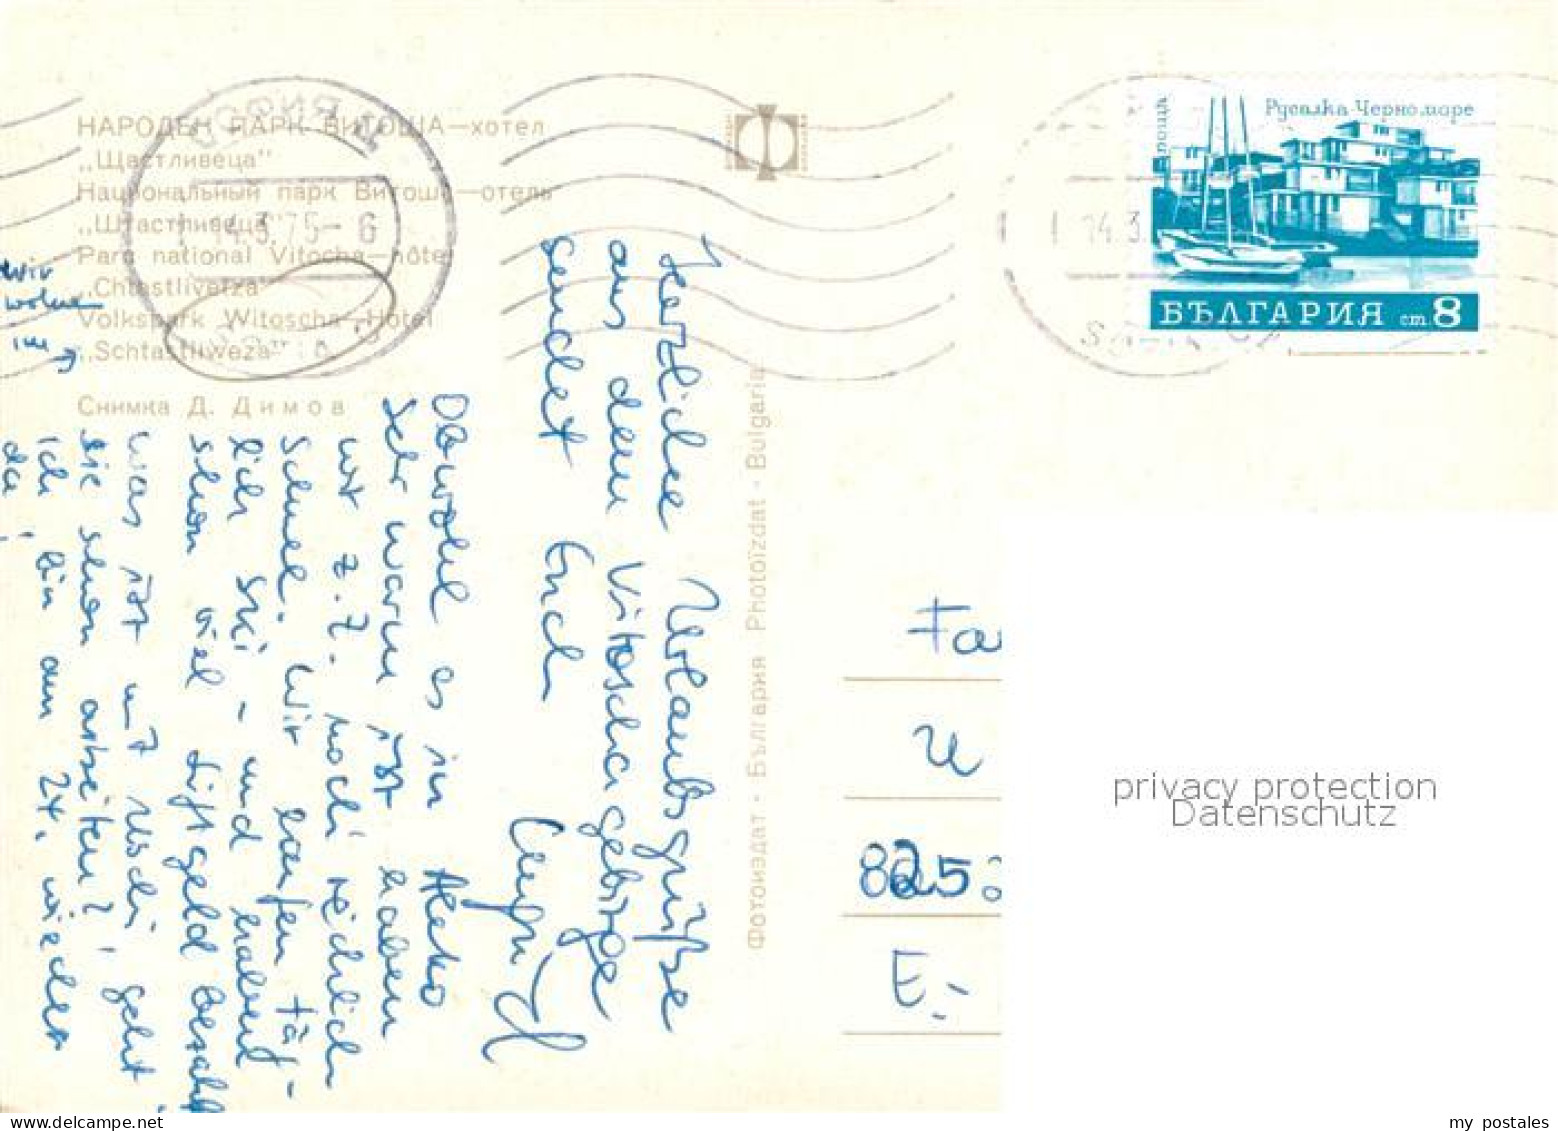 НАРОДЕН ПАРК ВИТОША—хотел
„Щастливеца"
Национальный парк Витоша—отель
„Штастливеца"
Parc national Vitocha—hôtel
„Chtastlivetza"
Volkspark Witoscha—Hotel
„Schtastliweza"
Снимка Д. Димов
Wir
wohnen
im ↑
14.3.75-6
14.3.
поща
Русалка-Черно море
БЪЛГАРИЯ ст. 8
SOFIA
Фотоиздат · България Photoïzdat · Bulgaria
Herzliche Urlaubsgrüße
aus dem Vitoschagebirge
sendet Euch
Obwohl es in Aleko
sehr warm ist haben
wir z. Z. noch reichlich
Schnee. Wir laufen täg-
lich Ski - und haben
schon viel Liftgeld bezahlt
Was ist mit Uschi, geht
sie schon arbeiten?
Ich bin am 24. wieder
da!
Fa
825
privacy protection
Datenschutz
my postales